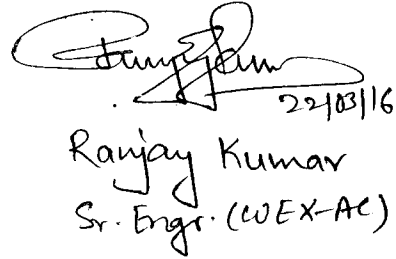 22/03/16
Ranjay Kumar
Sr. Engr. (WEX-AC)